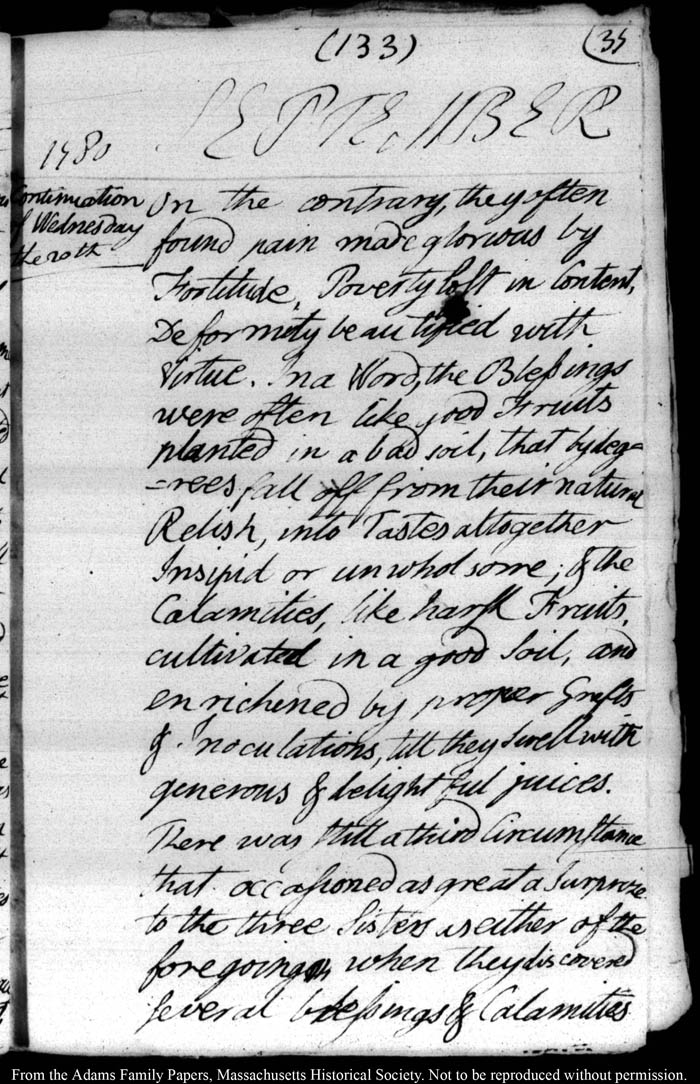 (133)
35
SEPTEMBER
1780
Continuation
of Wednesday
the 20th
On the contrary, they often
found pain made glorious by
Fortitude, Poverty lost in Content,
Deformity beautified with
Virtue. In a Word, the Blessings
were often like good Fruits
planted in a bad soil, that by deg=
=rees fall off from their natural
Relish, into Tastes altogether
Insipid or unwholsome; & the
Calamities, like harsh Fruits,
cultivated in a good Soil, and
enrichened by proper Grafts
& Inoculations, till they swell with
generous & delightful juices.
There was still a third Circumstance
that occasioned as great a Surprize
to the three Sisters as either of the
foregoing, when they discovered
several blessings & Calamities
From the Adams Family Papers, Massachusetts Historical Society. Not to be reproduced without permission.